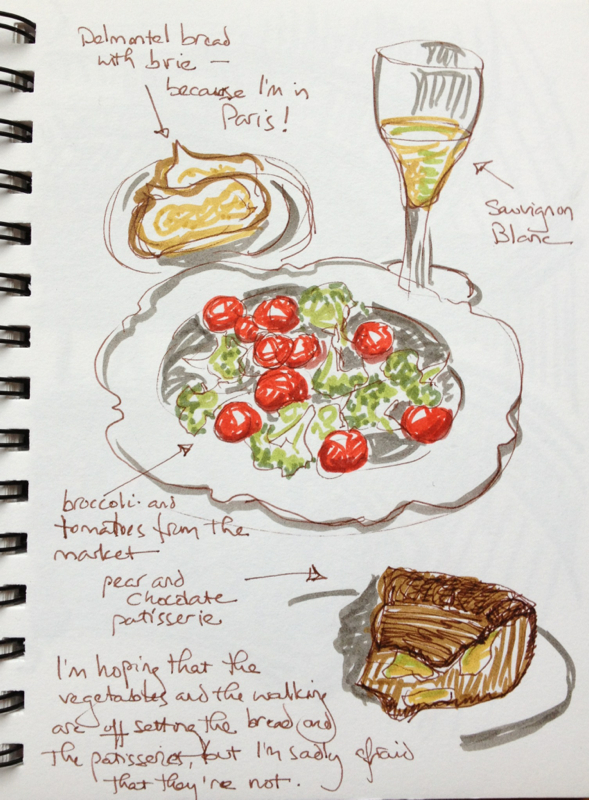 Delmontel bread
with brie —
because I'm in
Paris!
Sauvignon
Blanc
broccoli and
tomatoes from the
market
pear and
chocolate
patisserie
I'm hoping that the
vegetables and the walking
are off setting the bread and
the patisseries, but I'm sadly afraid
that they're not.